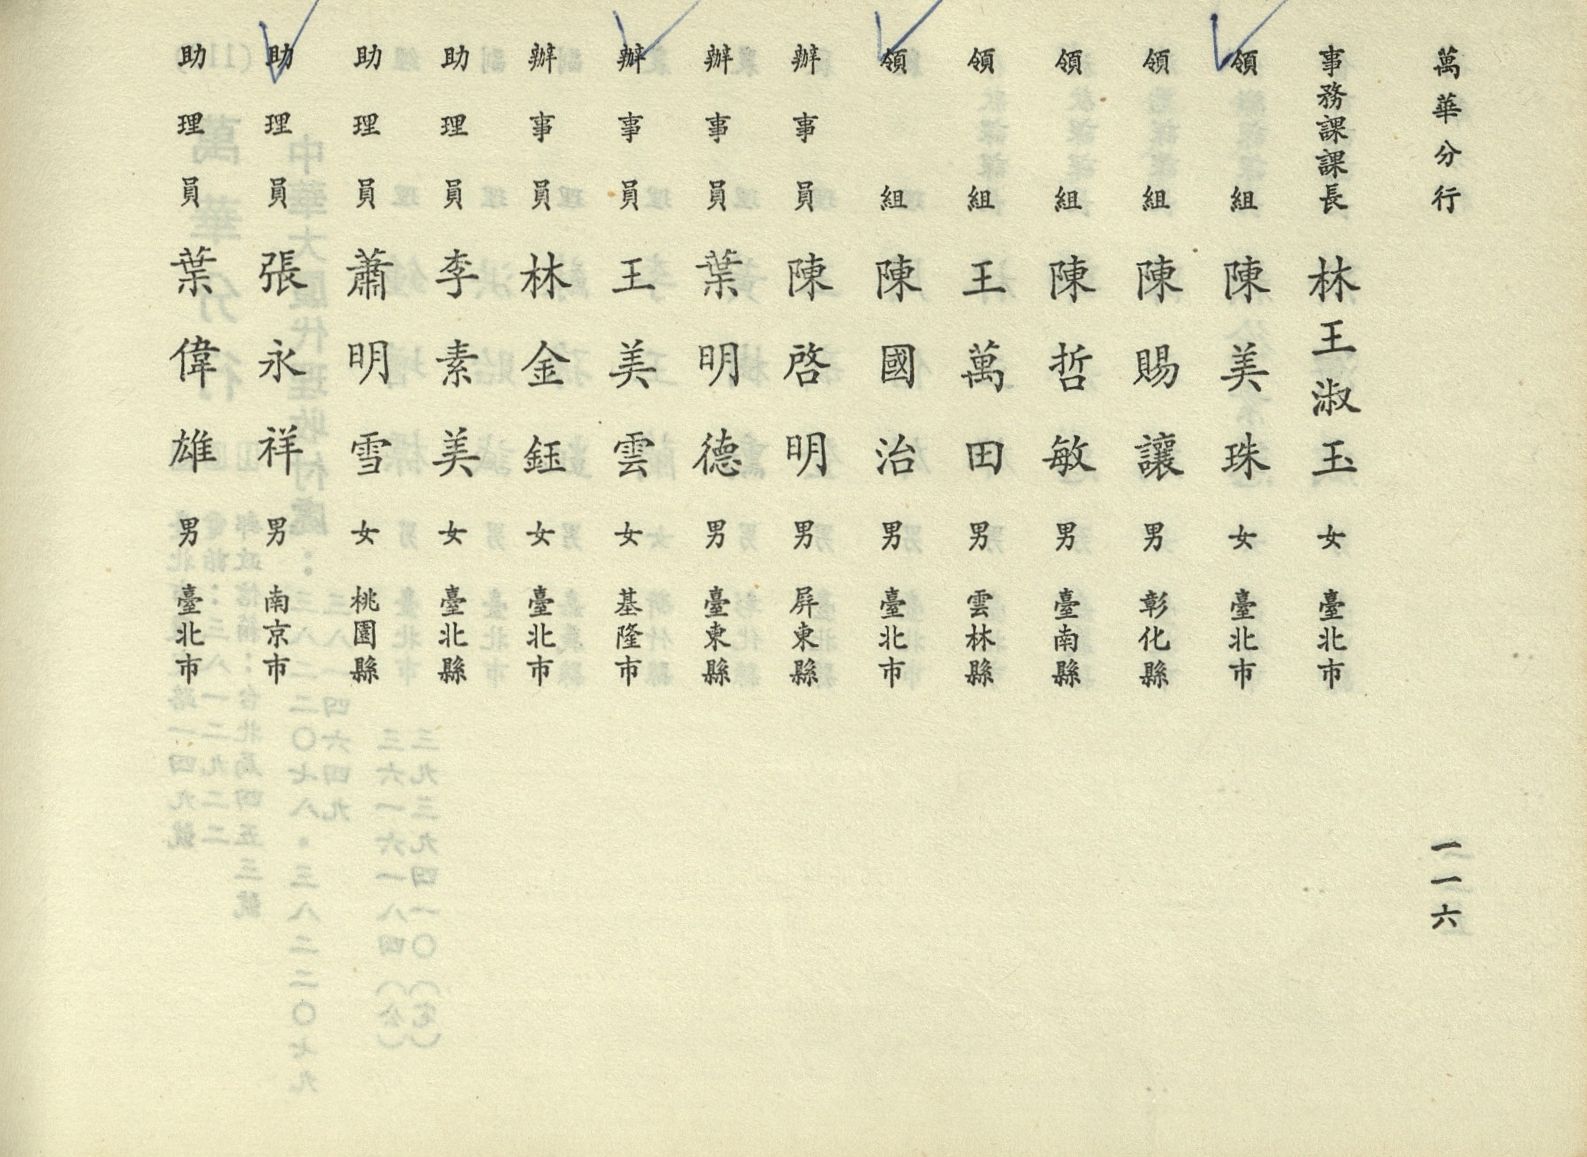 萬華分行
事務課課長 林王淑玉 女 臺北市
領組 陳美珠 女 臺北市
領組 陳賜讓 男 彰化縣
領組 陳哲敏 男 臺南縣
領組 王萬田 男 雲林縣
領組 陳國治 男 臺北市
辦事員 陳啓明 男 屏東縣
辦事員 葉明德 男 臺東縣
辦事員 王美雲 女 基隆市
辦事員 林金鈺 女 臺北市
助理員 李素美 女 臺北縣
助理員 蕭明雪 女 桃園縣
助理員 張永祥 男 南京市
助理員 葉偉雄 男 臺北市
一一六